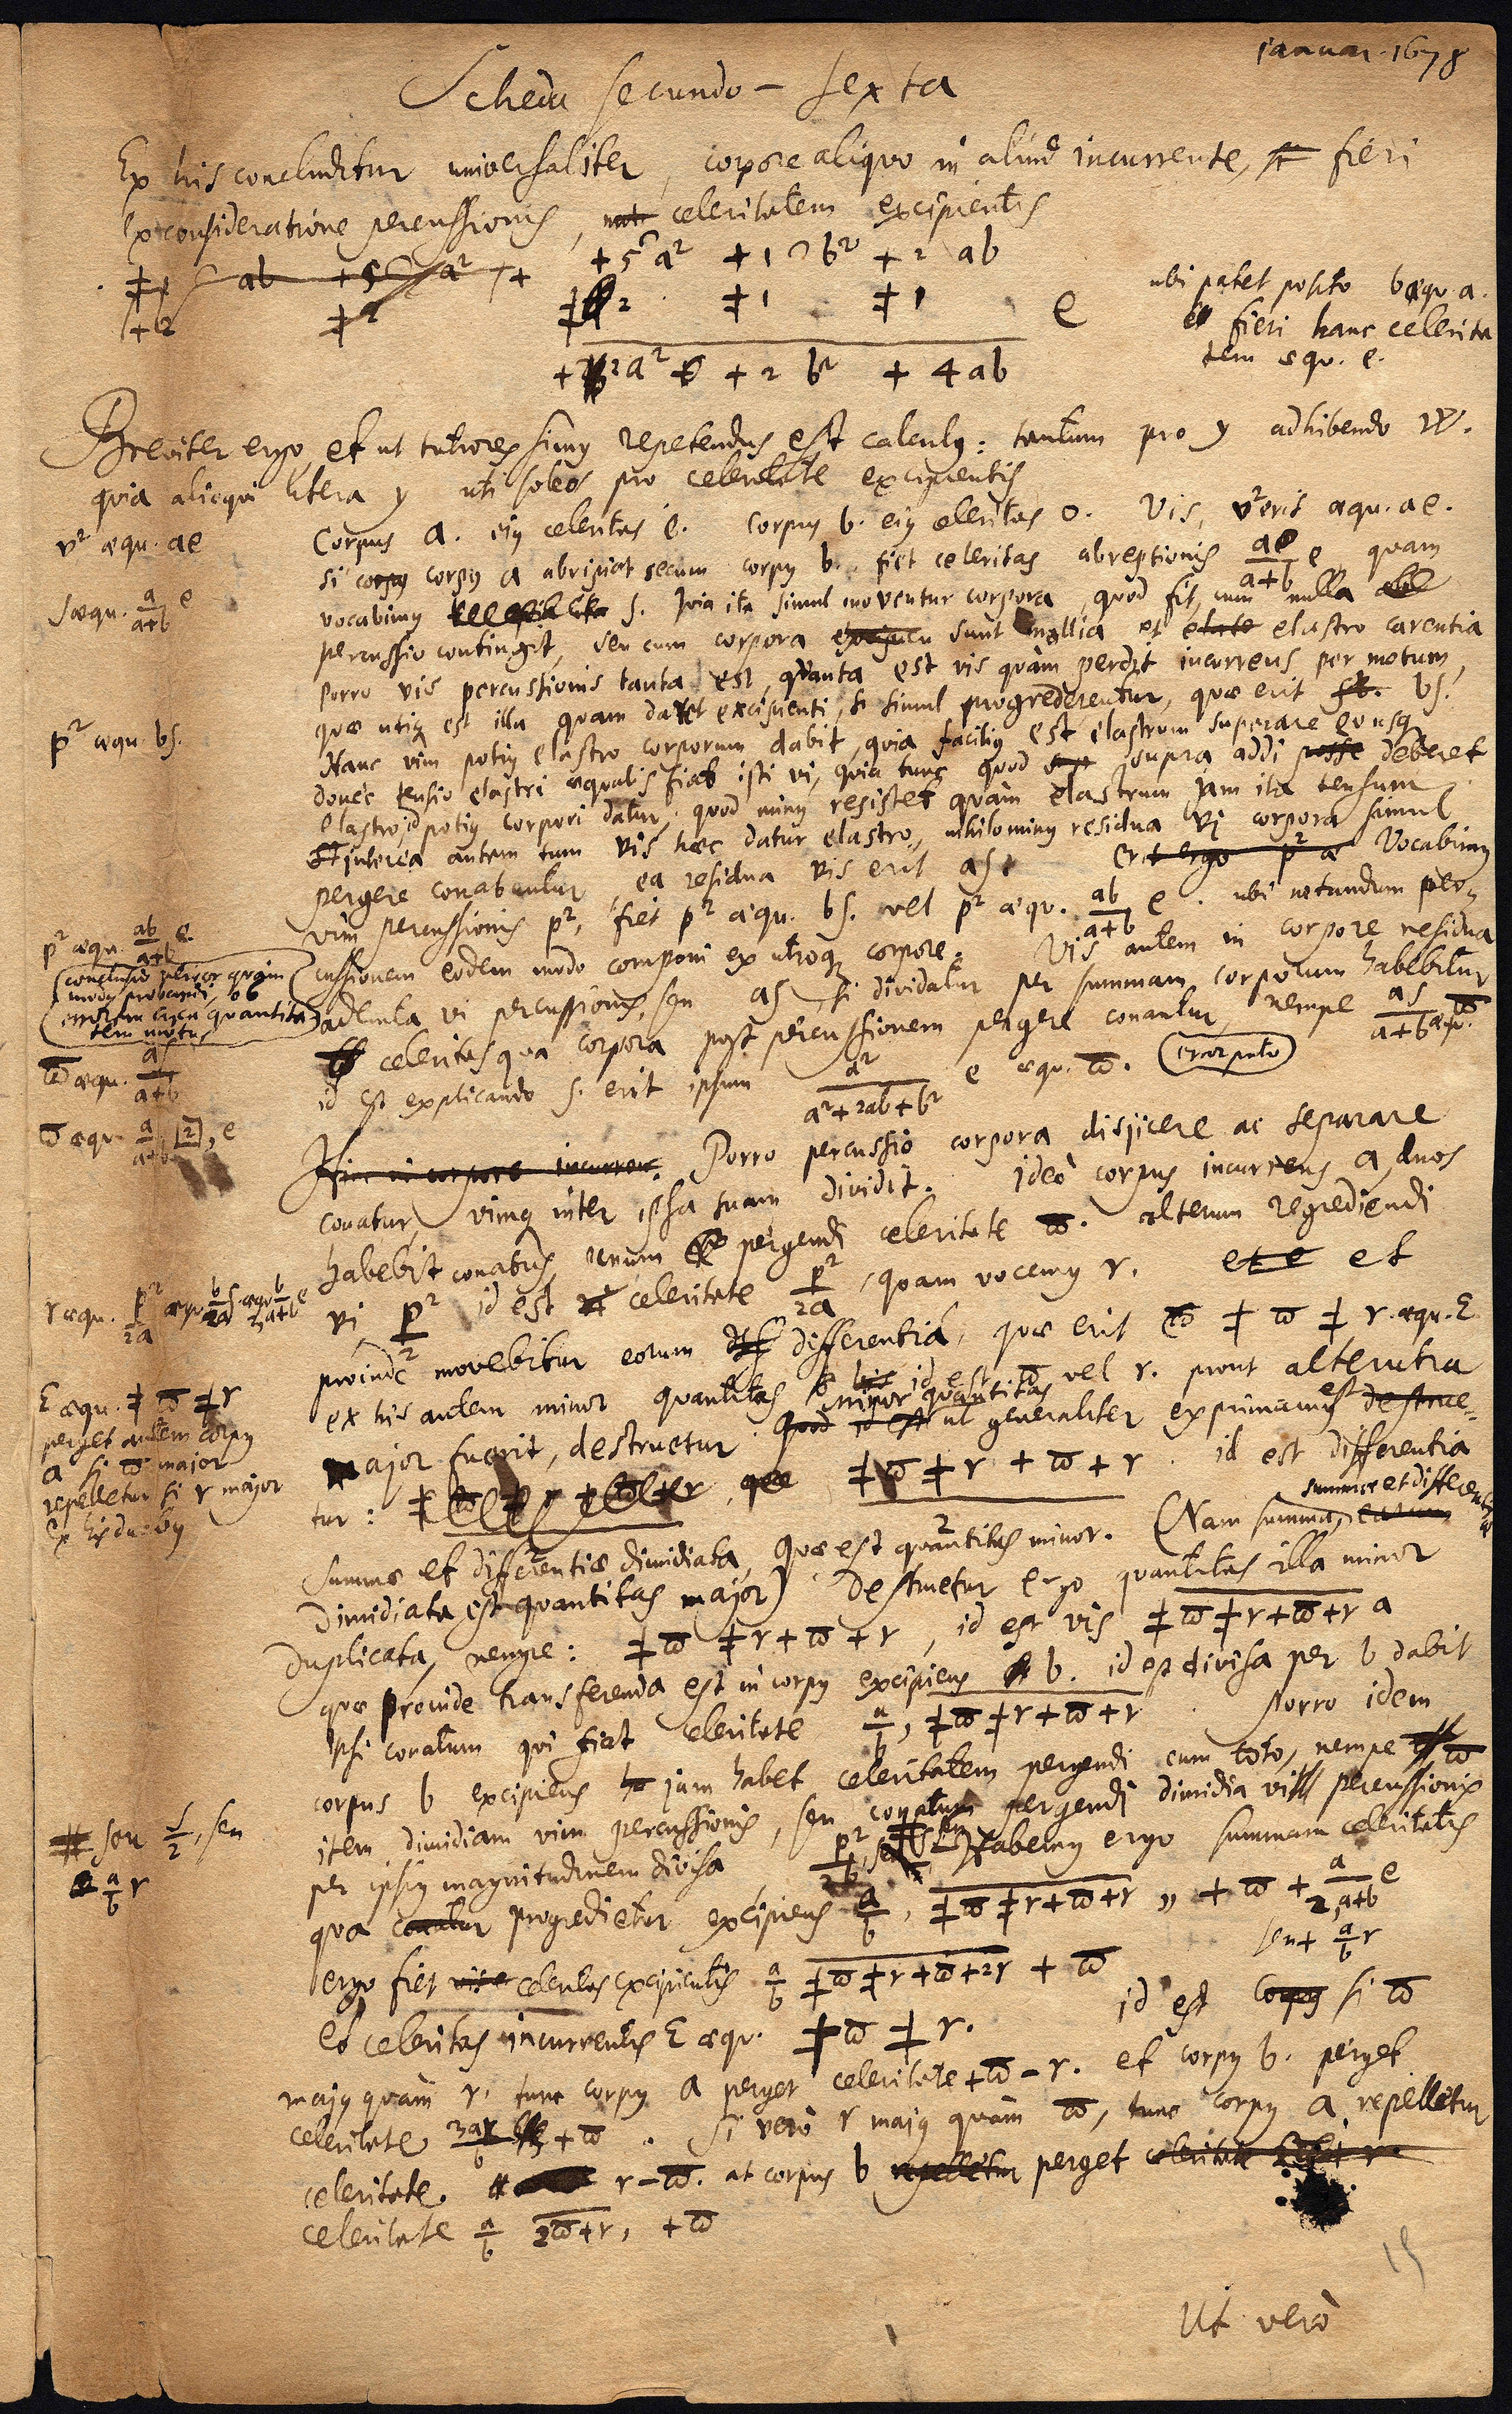 januar. 1678
Scheda secundo-sexta
Ex his concluditur universaliter, corpore aliquo in aliud incurrente, fieri
ex consideratione percussionis, celeritatem excipientis
+5 a² +1 b² + 2 ab
ǂ 2 ǂ1 ǂ1 e
+2a² + 2 b² + 4 ab
ubi patet posito b aequ. a.
fieri hanc celerita
tem aequ. e.
Breviter ergo, et ut tutiores simus repetendus est calculus: tantum pro y adhibendo w.
quia alioqui litera y uti soleo pro celeritate excipientis
v² aequ. ae
Corpus a. ejus celeritas e. Corpus b. ejus celeritas 0. Vis, v² erit aequ. ae.
si corpus a abripiat secum corpus b. fiet celeritas abreptionis a/(a+b) e quam
s aequ. a/(a+b) e
vocabimus s. Quia ita simul moventur corpora, quod fit, cum nulla
percussio contingit, seu cum corpora sunt mollia et elastro carentia
Porro vis percussionis tanta est, quanta est vis quam perdit incurrens per motum,
quae utique est illa quam daret excipienti, si simul progrederentur, quae erit bs.
p² aequ. bs.
Hanc vim potius elastro corporum dabit, quia facilius est elastrum superare eousque
donec tensio elastri aequalis fiat isti vi, quia tunc quod supra addi deberet
elastro, id potius corpori datur, quod minus resistet quam elastrum jam ita tensum
interea autem tum vis haec datur elastro, nihilominus residua vi corpora simul
pergere conabuntur ea residua vis erit as. Vocabimus
vim percussionis p², fiet p² aequ. bs. vel p² aequ. ab/(a+b) e. ubi notandum per-
p² aequ. ab/(a+b) e.
cussionem eodem modo componi ex utroque corpore. Vis autem in corpore residua
(conclusio verior quam
modus probandi, ob
errorem circa quantita
tem motus
ademta vi percussionis, seu as, si dividatur per summam corporum habebitur
celeritas qua corpora post percussionem pergere conantur, nempe as/(a+b) aequ. ϖ.
ϖ aequ. as/(a+b)
id est explicando s. erit ipsum a²/(a²+2ab+b²) e aequ. ϖ. (error puto)
ϖ aequ. a/(a+b) [2], e
Porro percussio corpora disjicere ac separare
conatur, vimque inter ipsa suam dividit. Ideo corpus incurrens a, duos
habebit conatus unum pergendi celeritate ϖ. alterum regrediendi
r aequ. p²/2a aequ. b/2a s aequ. b/(2, a+b) e
vi p²/2 id est celeritate p²/2a, quam vocemus r. et
proinde movebitur eorum differentia, quae erit ǂ ϖ ǂ r. aequ. Ɛ
ex his autem minor quantitas id est ϖ vel r. prout alterutra
Ɛ aequ. ǂ ϖ ǂ r
perget autem corpus
a si ϖ major
repelletur si r major
ex his duobus
major fuerit, destruetur. minor quantitas ut generaliter exprimamus est
tur: ǂϖ ǂ r + ϖ + r . id est differentia
summae et differentiae dimidiata, quae est quantitas minor. (Nam summa, summae et differentiae
dimidiata est quantitas major) Destruetur ergo quantitas illa minor
duplicata, nempe: ǂϖ ǂ r + ϖ + r, id est vis ǂϖ ǂ r + ϖ + r a
quae proinde transferenda est in corpus excipiens b. id est divisa per b dabit
ipsi conatum qui fiat celeritate a/b, ǂϖ ǂ r + ϖ + r . Porro idem
corpus b excipiens jam habet celeritatem pergendi cum toto, nempe ϖ
item dimidiam vim percussionis, seu conatum pergendi dimidia vi percussionis
seu s/2, seu
a/b r
per ipsius magnitudinem divisa, p²/2b, Habemus ergo summam celeritatis
qua progredietur excipiens a/b, ǂϖ ǂ r + ϖ + r ,, + ϖ + a/(2, a+b) e
seu + a/b r
ergo fiet celeritas excipientis a/b ǂϖ ǂ r + ϖ + 2r + ϖ
Et celeritas incurrentis Ɛ aequ. ǂ ϖ ǂ r. id est si ϖ
majus quam r, tunc corpus a perget celeritate + ϖ − r. et corpus b. perget
celeritate 3ar/b + ϖ . Si vero r majus quam ϖ, tunc corpus a repelletur
celeritate r − ϖ. at corpus b perget
celeritate a/b 2ϖ + r, + ϖ
15
Ut vero